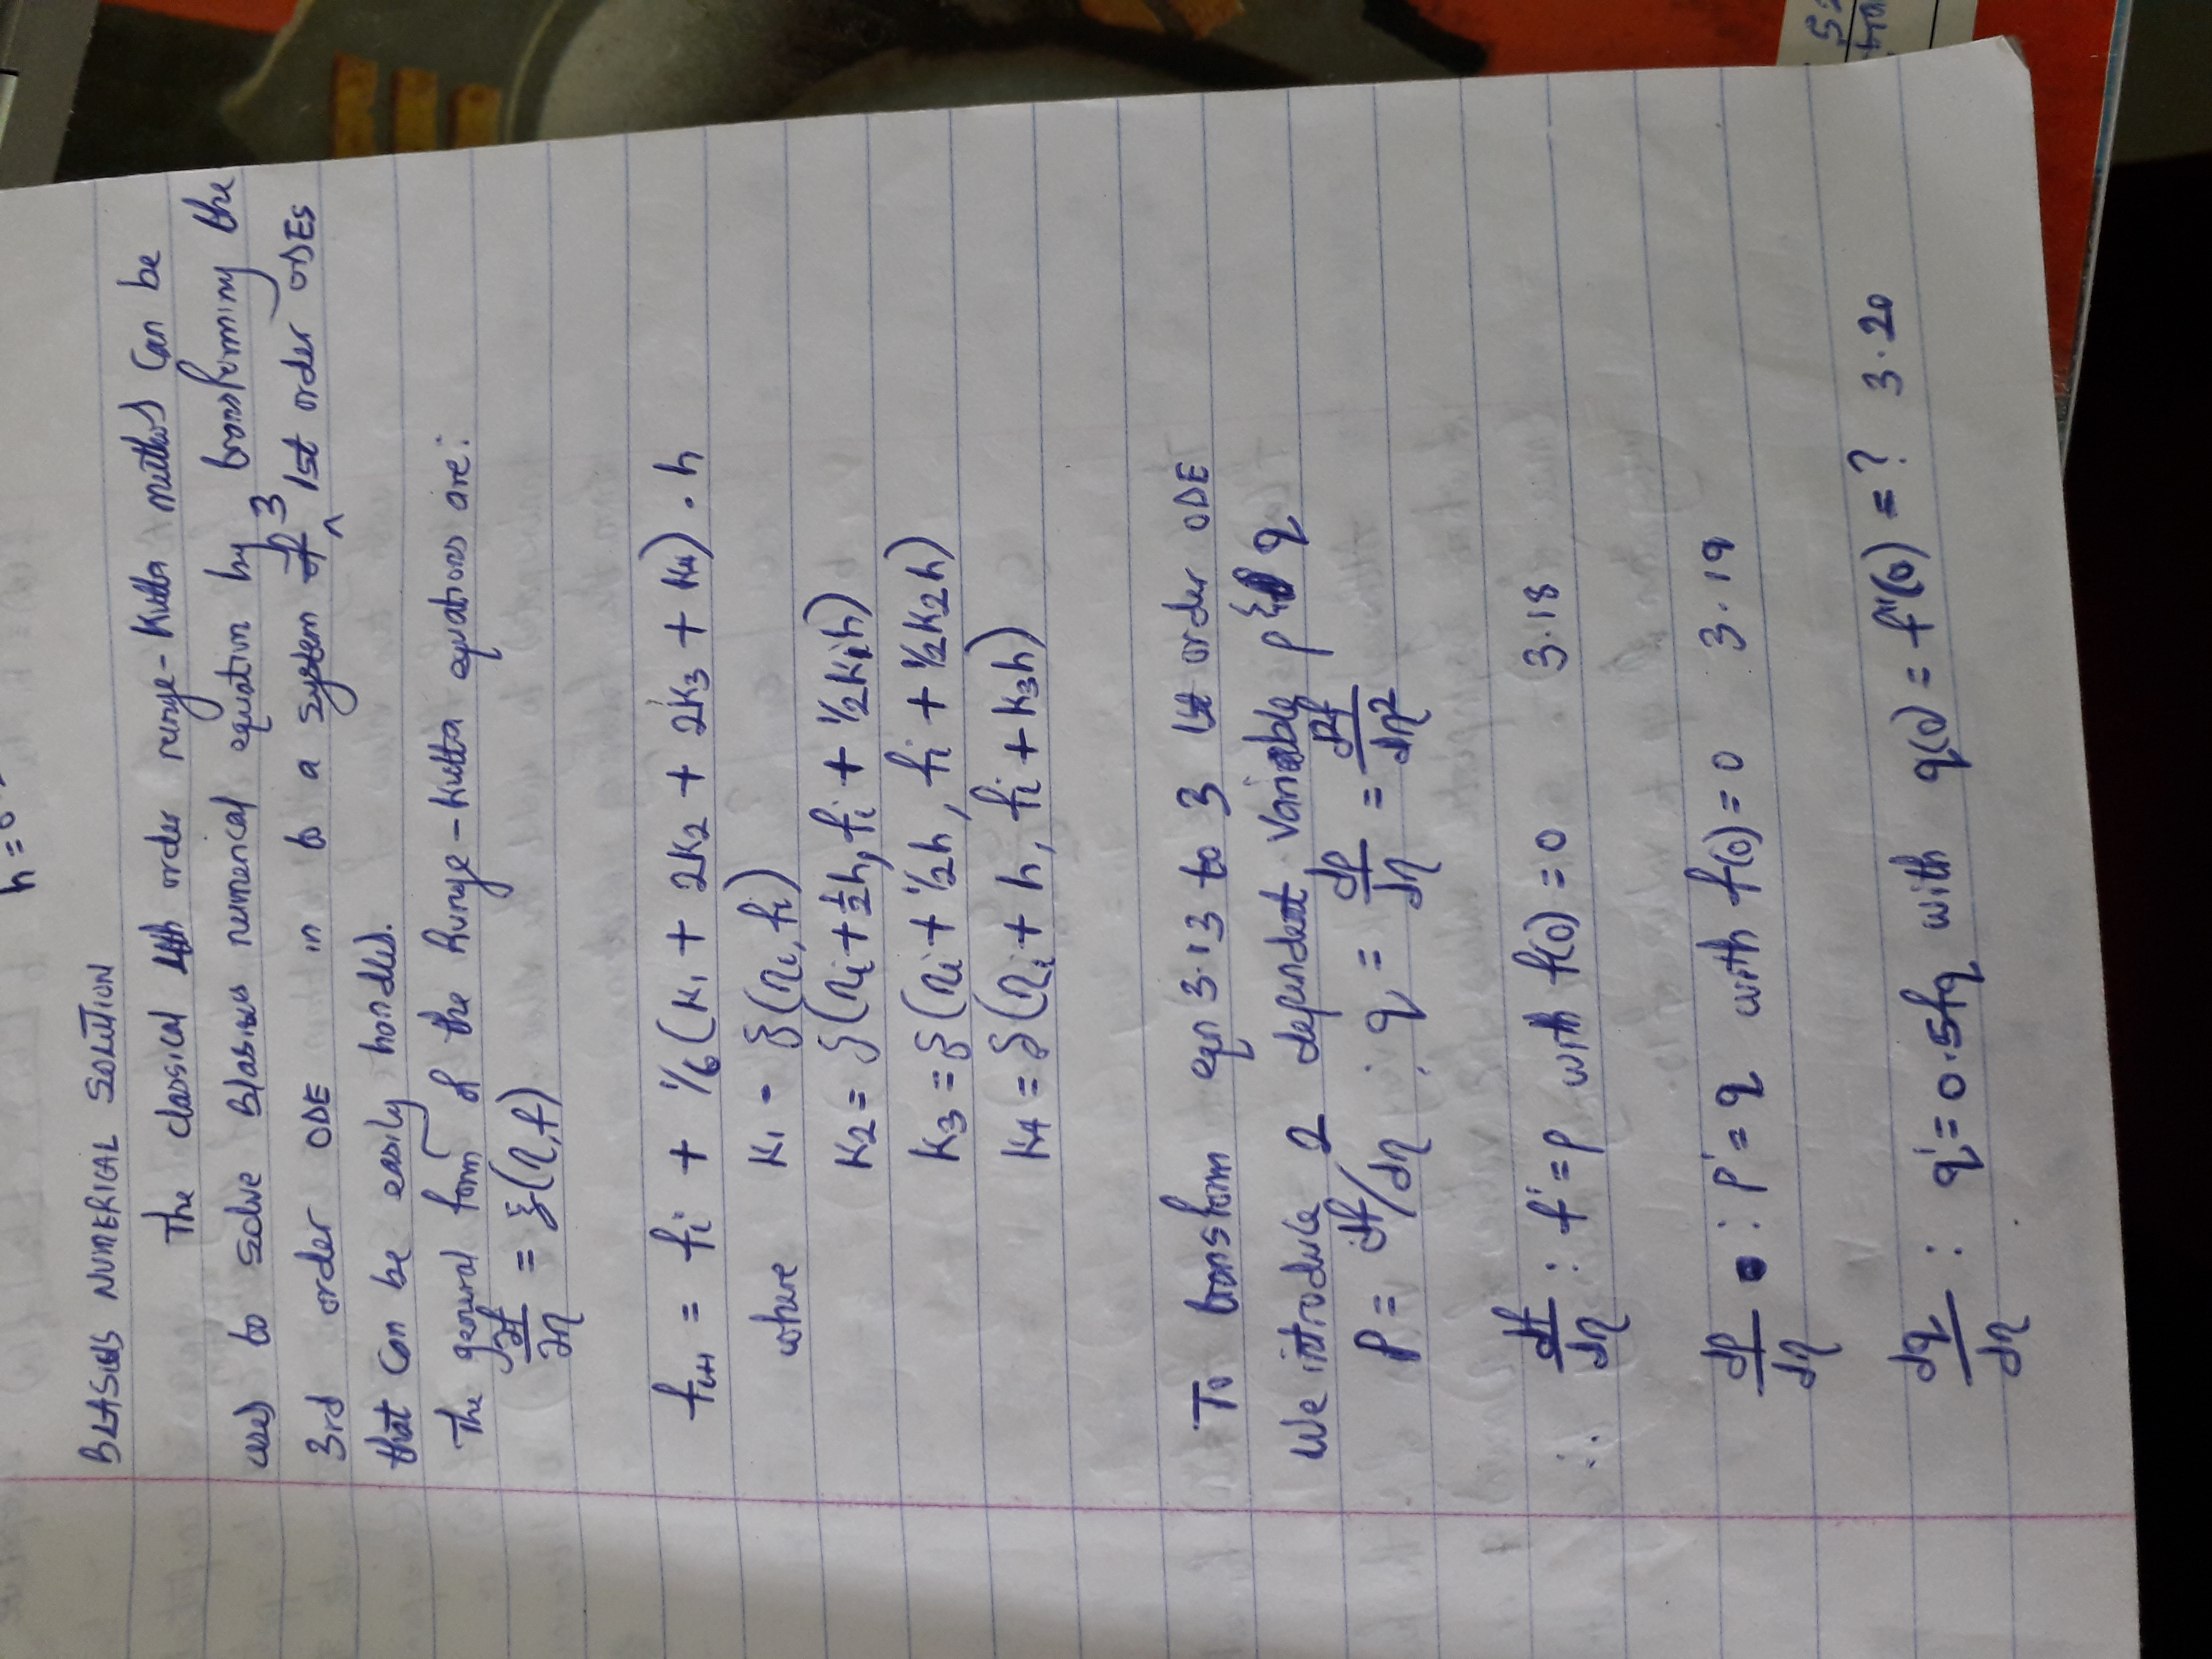 h = 0.
BLASIUS NUMERICAL SOLUTION
The classical 4th order runge-Kutta method can be
used to solve Blasius numerical equation by transforming the
3rd order ODE in to a system of 3 1st order ODEs
that can be easily handled.
The general form of the Runge-Kutta equations are:
∂f/∂η = ξ(η,f)
fi+1 = fi + 1/6(K1 + 2K2 + 2K3 + K4) . h
where K1 = ξ(ηi, fi)
K2 = ξ(ηi + 1/2h, fi + 1/2K1h)
K3 = ξ(ηi + 1/2h, fi + 1/2K2h)
K4 = ξ(ηi + h, fi + K3h)
To transform eqn 3.13 to 3 1st order ODE
We introduce 2 dependent variable p & q
P = df/dη ; q = dp/dη = d2f/dη2
∴ df/dη : f' = p with f(0) = 0 3.18
dp/dη : p' = q with f(0) = 0 3.19
dq/dη : q' = 0.5fq with q(0) = f''(0) = ? 3.20
52